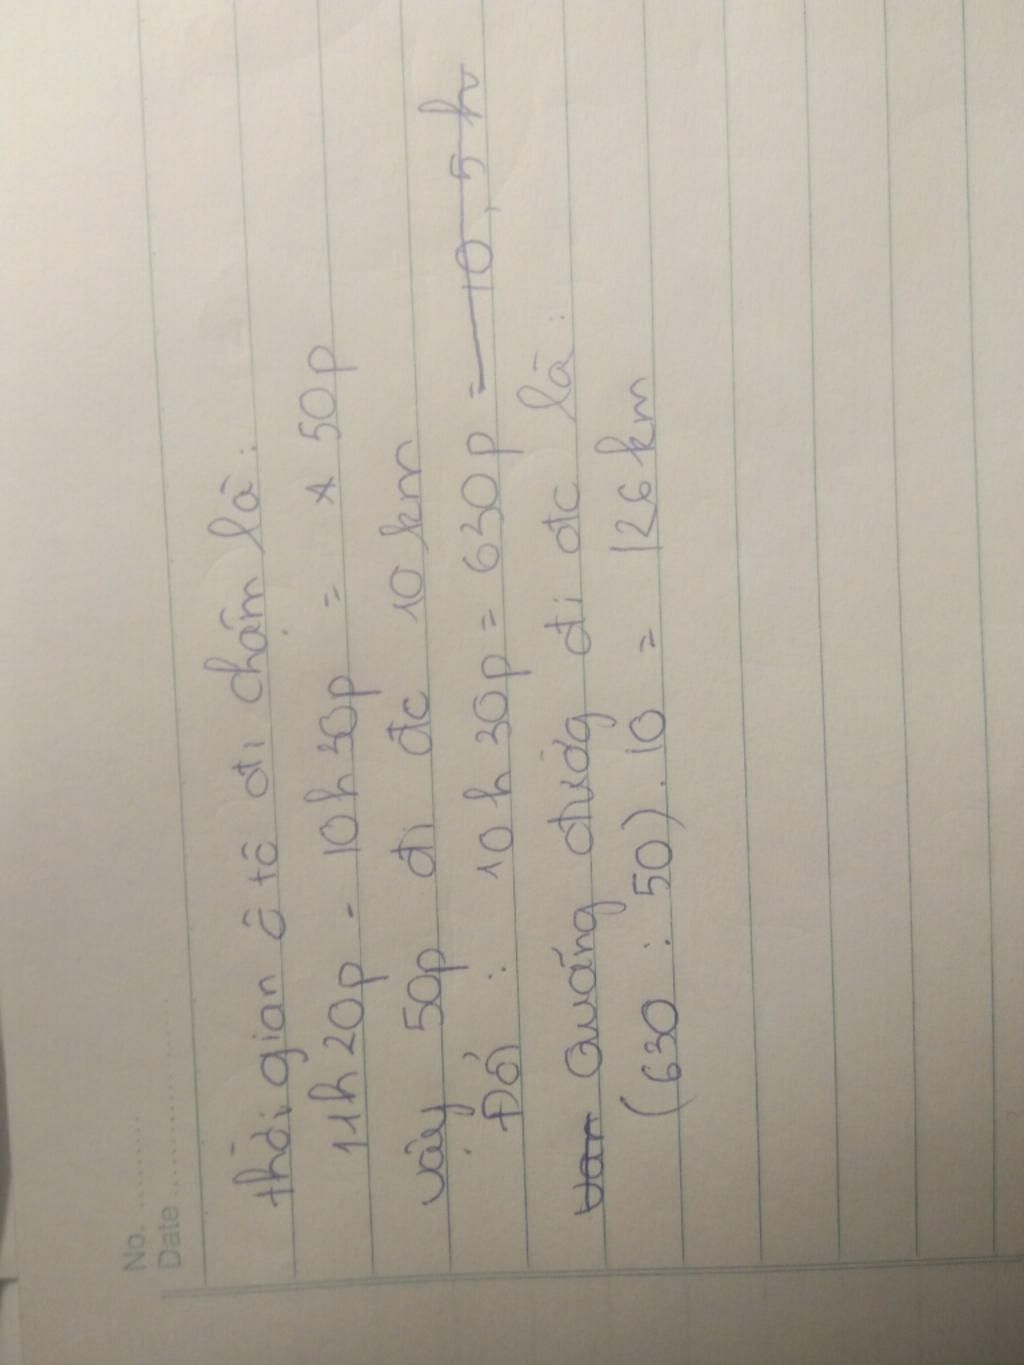 No. ............
Date ........................
thời gian ô tô đi chậm là:
11h20p - 10h30p = 50p
vậy 50p đi đc 10km
Đổi : 10h30p = 630p = 10,5h
Quãng đường đi đc là:
(630 : 50).10 = 126km